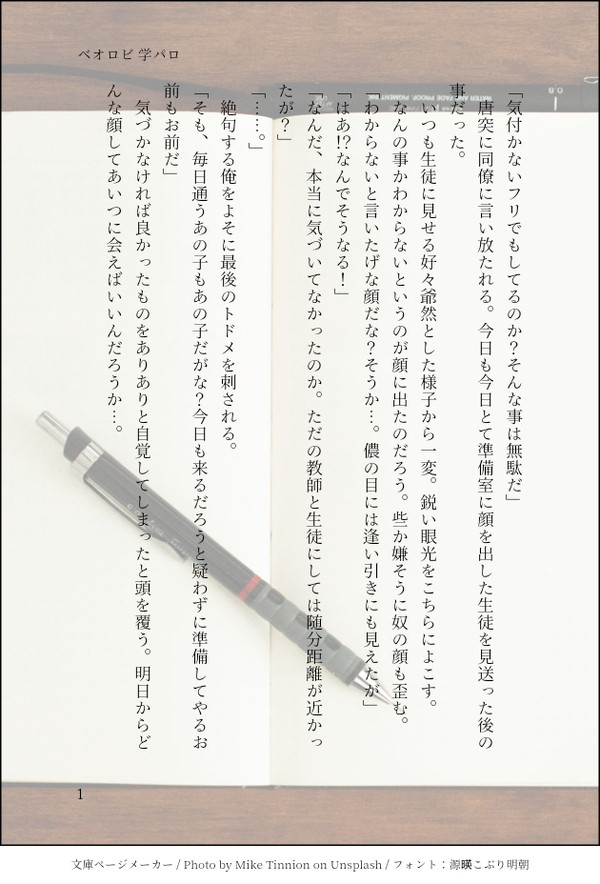 ベオロビ 学パロ
「気付かないフリでもしてるのか？そんな事は無駄だ」
　唐突に同僚に言い放たれる。今日も今日とて準備室に顔を出した生徒を見送った後の
事だった。
　いつも生徒に見せる好々爺然とした様子から一変。鋭い眼光をこちらによこす。
　なんの事かわからないというのが顔に出たのだろう。些か嫌そうに奴の顔も歪む。
「わからないと言いたげな顔だな？そうか…。儂の目には逢い引きにも見えたが」
「はあ!?なんでそうなる！」
「なんだ、本当に気づいてなかったのか。ただの教師と生徒にしては随分距離が近かっ
たが？」
「……。」
　絶句する俺をよそに最後のトドメを刺される。
「そも、毎日通うあの子もあの子だがな？今日も来るだろうと疑わずに準備してやるお
前もお前だ」
　気づかなければ良かったものをありありと自覚してしまったと頭を覆う。明日からど
んな顔してあいつに会えばいいんだろうか…。
1
文庫ページメーカー / Photo by Mike Tinnion on Unsplash / フォント：源暎こぶり明朝